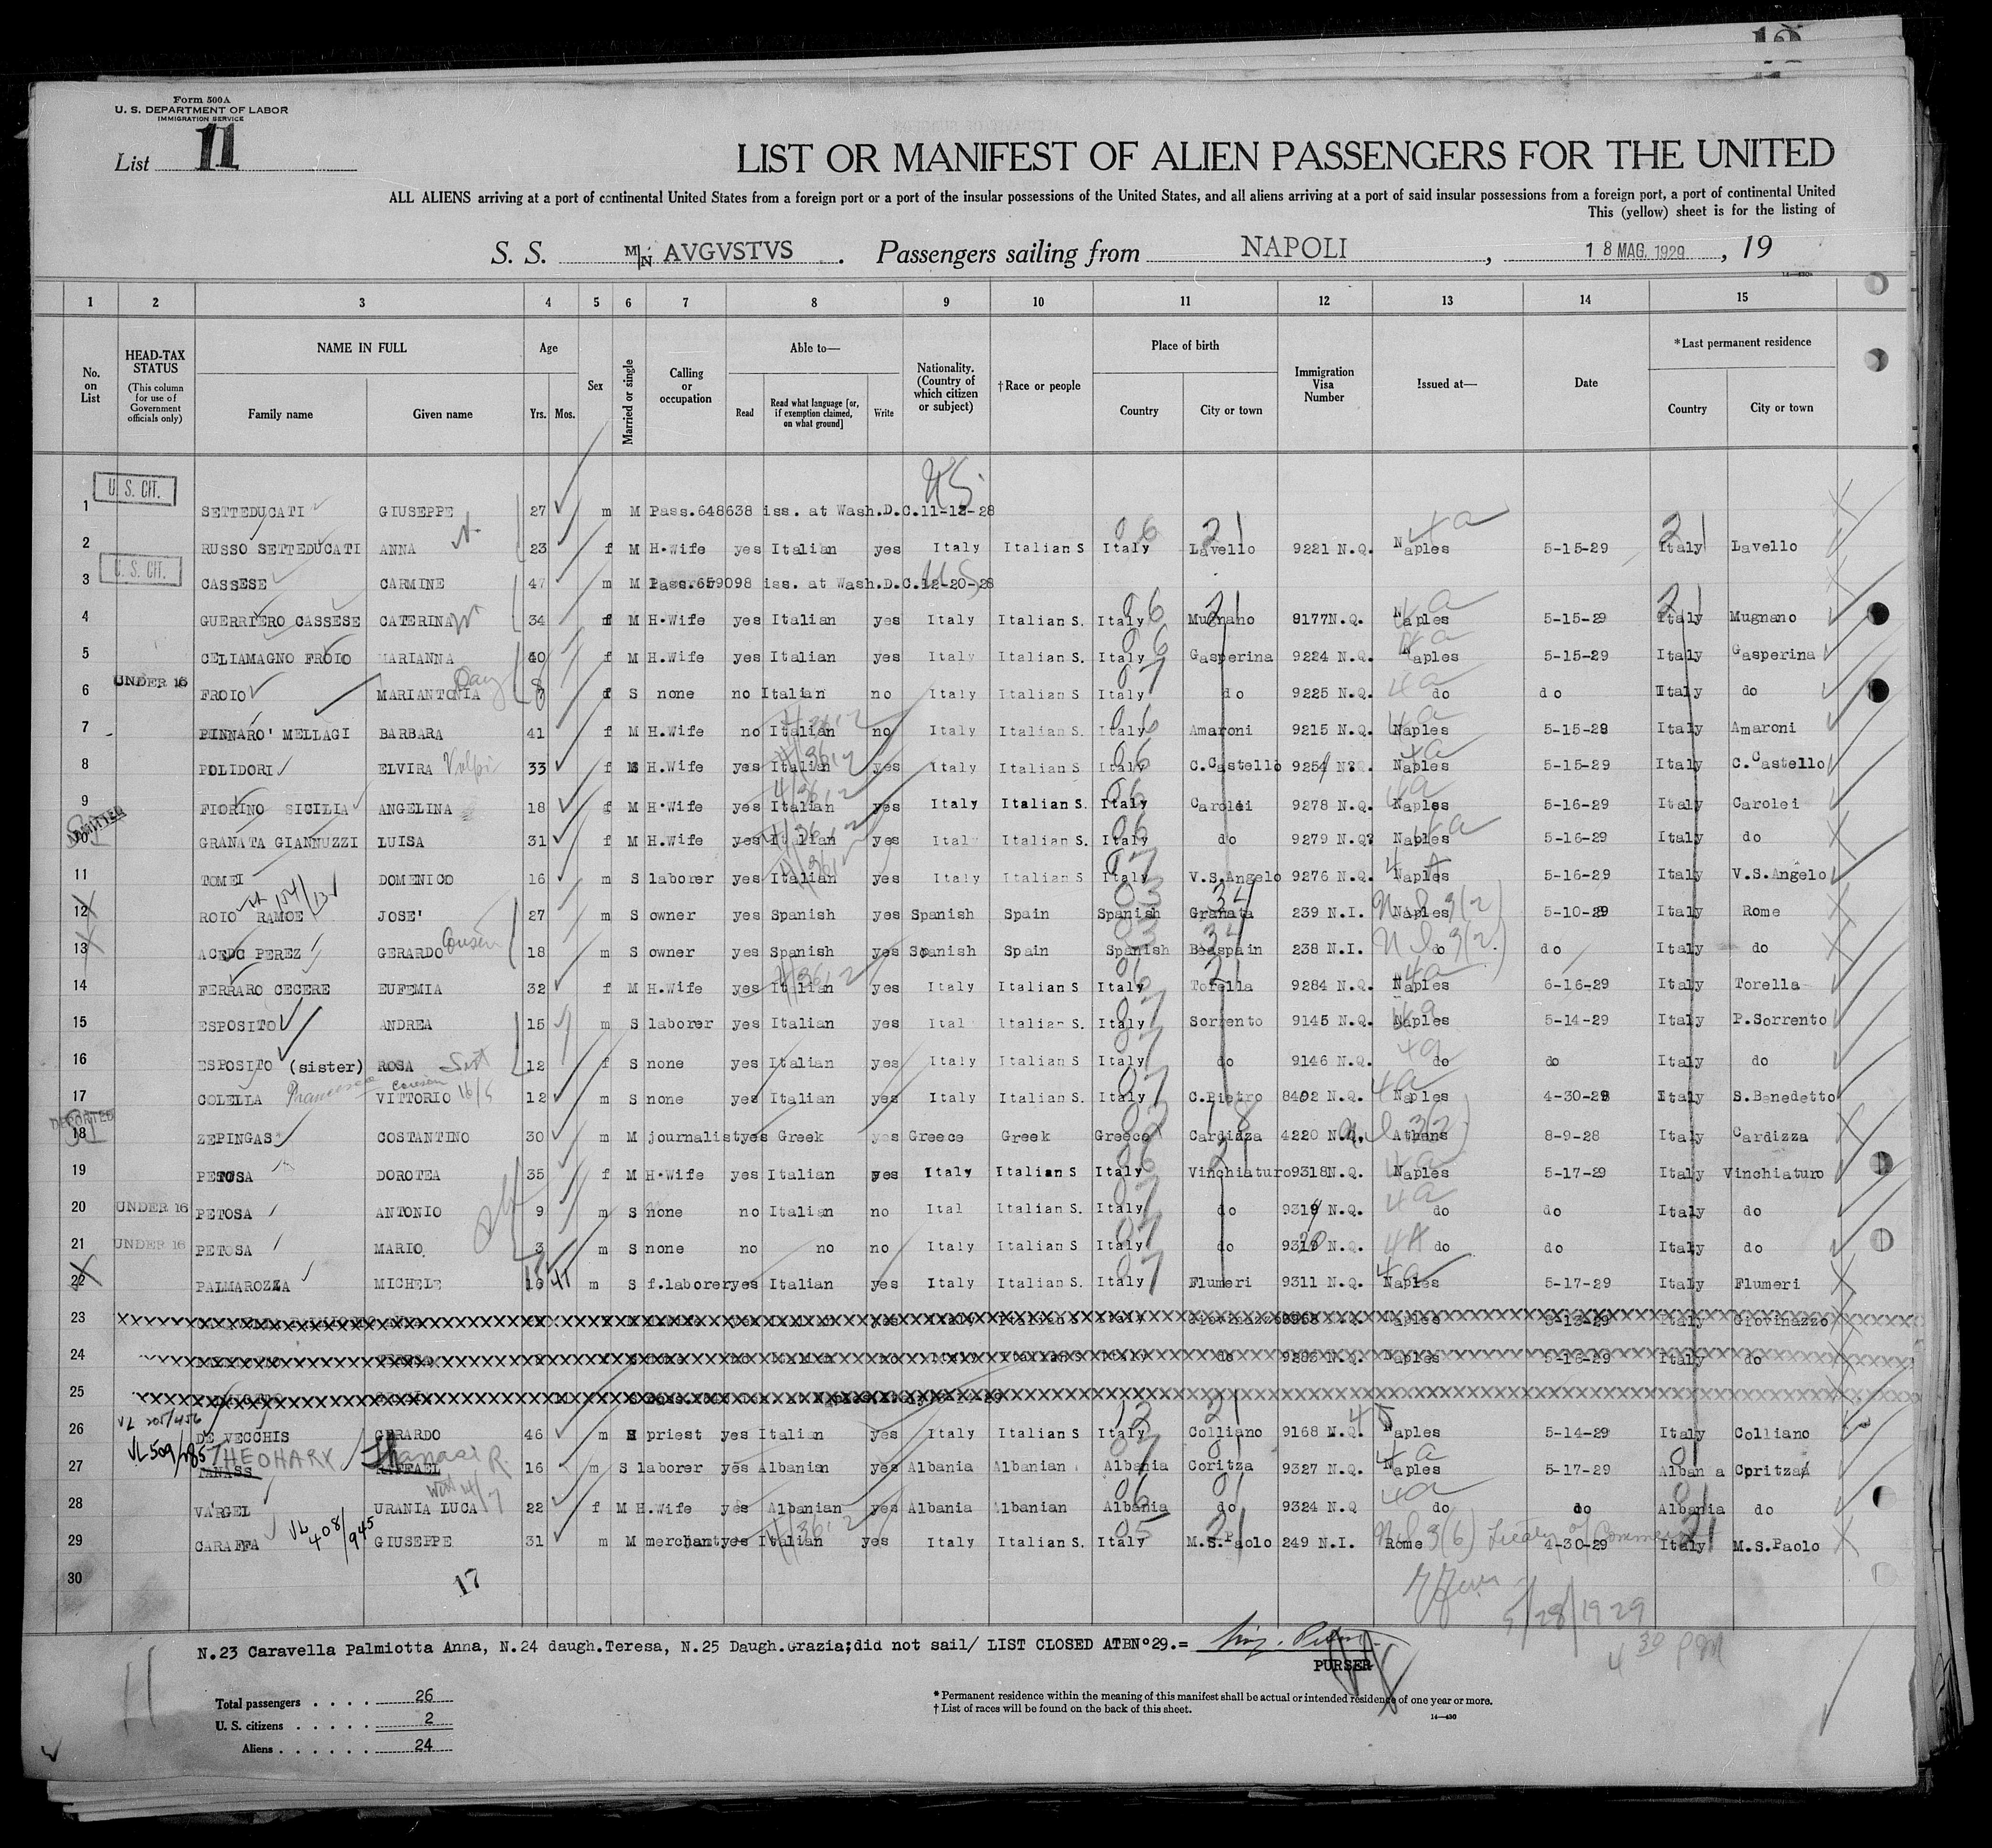 12
Form 500A
U. S. DEPARTMENT OF LABOR
IMMIGRATION SERVICE
List 11
LIST OR MANIFEST OF ALIEN PASSENGERS FOR THE UNITED
ALL ALIENS arriving at a port of continental United States from a foreign port or a port of the insular possessions of the United States, and all aliens arriving at a port of said insular possessions from a foreign port, a port of continental United
This (yellow) sheet is for the listing of
S. S. M/N AVGVSTVS . Passengers sailing from NAPOLI , 18 MAG. 1929 , 19
14—430
1 2 3 4 5 6 7 8 9 10 11 12 13 14 15
No. on List HEAD-TAX STATUS (This column for use of Government officials only) NAME IN FULL Family name Given name Age Yrs. Mos. Sex Married or single Calling or occupation Able to— Read Read what language [or, if exemption claimed, on what ground] Write Nationality. (Country of which citizen or subject) †Race or people Place of birth Country City or town Immigration Visa Number Issued at— Date *Last permanent residence Country City or town
U. S. CIT. US.
1 SETTEDUCATI GIUSEPPE 27 m M Pass.648638 iss. at Wash.D.C.11-12-28
2 RUSSO SETTEDUCATI ANNA 23 f M H.Wife yes Italian yes Italy Italian S Italy Lavello 9221 N.Q. Naples 5-15-29 Italy Lavello
U. S. CIT.
3 CASSESE CARMINE 47 m M Pass.659098 iss. at Wash.D.C.12-20-28
4 GUERRIERO CASSESE CATERINA 34 f M H.Wife yes Italian yes Italy Italian S. Italy Mugnano 9177N.Q. Naples 5-15-29 Italy Mugnano
5 CELIAMAGNO FROIO MARIANNA 40 f M H.Wife yes Italian yes Italy Italian S. Italy Gasperina 9224 N.Q. Naples 5-15-29 Italy Gasperina
UNDER 16
6 FROIO MARIANTONIA 8 f S none no Italian no Italy Italian S Italy do 9225 N.Q. do do Italy do
7 PINNARO' MELLAGI BARBARA 41 f M H.Wife no Italian no Italy Italian S. Italy Amaroni 9215 N.Q. Naples 5-15-29 Italy Amaroni
8 POLIDORI ELVIRA Volpi 33 f M H.Wife yes Italian yes Italy Italian S Italy C.Castello 9254 N.Q. Naples 5-15-29 Italy C.Castello
9 FIORINO SICILIA ANGELINA 18 f M H.Wife yes Italian yes Italy Italian S. Italy Carolei 9278 N.Q. Naples 5-16-29 Italy Carolei
ADMITTED
10 GRANATA GIANNUZZI LUISA 31 f M H.Wife yes Italian yes Ital Italian S. Italy do 9279 N.Q. Naples 5-16-29 Italy do
11 TOMEI DOMENICO 16 m S laborer yes Italian yes Italy Italian S Italy V.S.Angelo 9276 N.Q. Naples 5-16-29 Italy V.S.Angelo
12 ROIO RAMOE JOSE' 27 m S owner yes Spanish yes Spanish Spain Spanish Granata 239 N.I. Naples 5-10-29 Italy Rome
13 ACEDO PEREZ GERARDO Cousin 18 m S owner yes Spanish yes Spanish Spain Spanish 238 N.I. do do Italy do
14 FERRARO CECERE EUFEMIA 32 f M H.Wife yes Italian yes Italy Italian S Italy Torella 9284 N.Q. Naples 6-16-29 Italy Torella
15 ESPOSITO ANDREA 15 m S laborer yes Italian yes Ital Italian S. Italy Sorrento 9145 N.Q. Naples 5-14-29 Italy P.Sorrento
16 ESPOSITO (sister) ROSA 12 f S none yes Italian yes Italy Italian S Italy do 9146 N.Q. do do Italy do
17 COLELLA VITTORIO 12 m S none yes Italian yes Italy Italian S. Italy C.Pietro 8492 N.Q. Naples 4-30-29 Italy S.Benedetto
DEPORTED
18 ZEPINGAS COSTANTINO 30 m M journalist yes Greek yes Greece Greek Greece Cardizza 4220 Athens 8-9-28 Italy Cardizza
19 PETOSA DOROTEA 35 f M H.Wife yes Italian yes Italy Italian S Italy Vinchiaturo 9318N.Q. Naples 5-17-29 Italy Vinchiaturo
20 UNDER 16 PETOSA ANTONIO 9 m S none no Italian no Ital Italian S. Italy do 9319 N.Q. do do Italy do
21 UNDER 16 PETOSA MARIO 3 m S none no no no Italy Italian S Italy do 9320 N.Q. do do Italy do
22 PALMAROZZA MICHELE 16 m S f.laborer yes Italian yes Italy Italian S. Italy Flumeri 9311 N.Q. Naples 5-17-29 Italy Flumeri
23 Giovinazzo
24 do
25
26 DE VECCHIS GERARDO 46 m priest yes Italian yes Italy Italian S Italy Colliano 9168 N.Q. Naples 5-14-29 Italy Colliano
VL 509/985 THEOHARY Thanasi R.
27 TANASS RAFFAEL 16 m S laborer yes Albanian yes Albania Albanian Albania Coritza 9327 N.Q. Naples 5-17-29 Alban a Coritza
28 VARGEL URANIA LUCA 22 f M H.Wife yes Albanian yes Albania Albanian Albania do 9324 N.Q do do Albania do
29 CARAFFA VL 408/945 GIUSEPPE 31 m M merchant yes Italian yes Italy Italian S. Italy M.S.Paolo 249 N.I. Rome 3(6) Treaty of Commerce 4-30-29 Italy M.S.Paolo
30 17
5/28/1929
4 30 PM
N.23 Caravella Palmiotta Anna, N.24 daugh.Teresa, N.25 Daugh.Grazia;did not sail/ LIST CLOSED ATBN°29.=
PURSER
11
Total passengers . . . . 26
U. S. citizens . . . . . 2
Aliens . . . . . . 24
* Permanent residence within the meaning of this manifest shall be actual or intended residence of one year or more.
† List of races will be found on the back of this sheet.
14—430